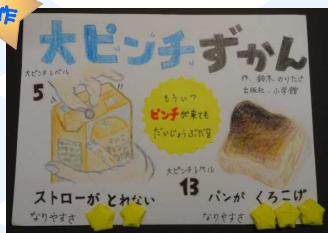 作
大ピンチずかん
作. 鈴木 のりたけ
出版社. 小学館
大ピンチレベル
5
もういつ
ピンチが来ても
だいじょうぶだ!!
大ピンチレベル
13
ストローが とれない
なりやすさ
パンが くろこげ
なりやすさ